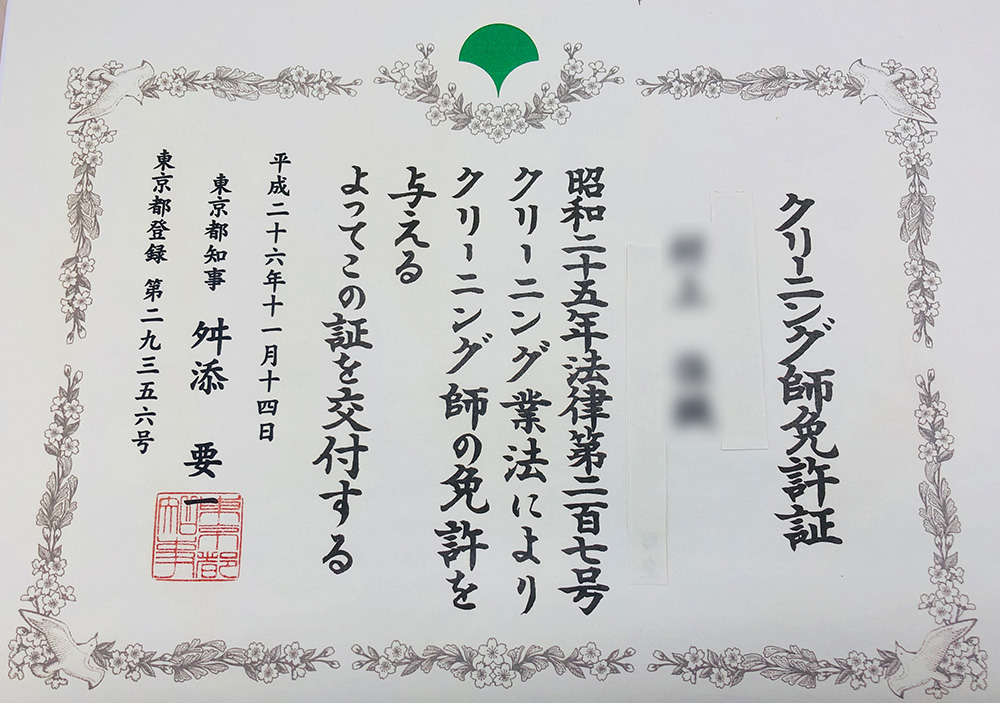 クリーニング師免許証
昭和二十五年法律第二百七号
クリーニング業法により
クリーニング師の免許を
与える
よってこの証を交付する
平成二十六年十一月十四日
東京都知事 舛添 要一
東京都知事
東京都登録 第二九三五六号